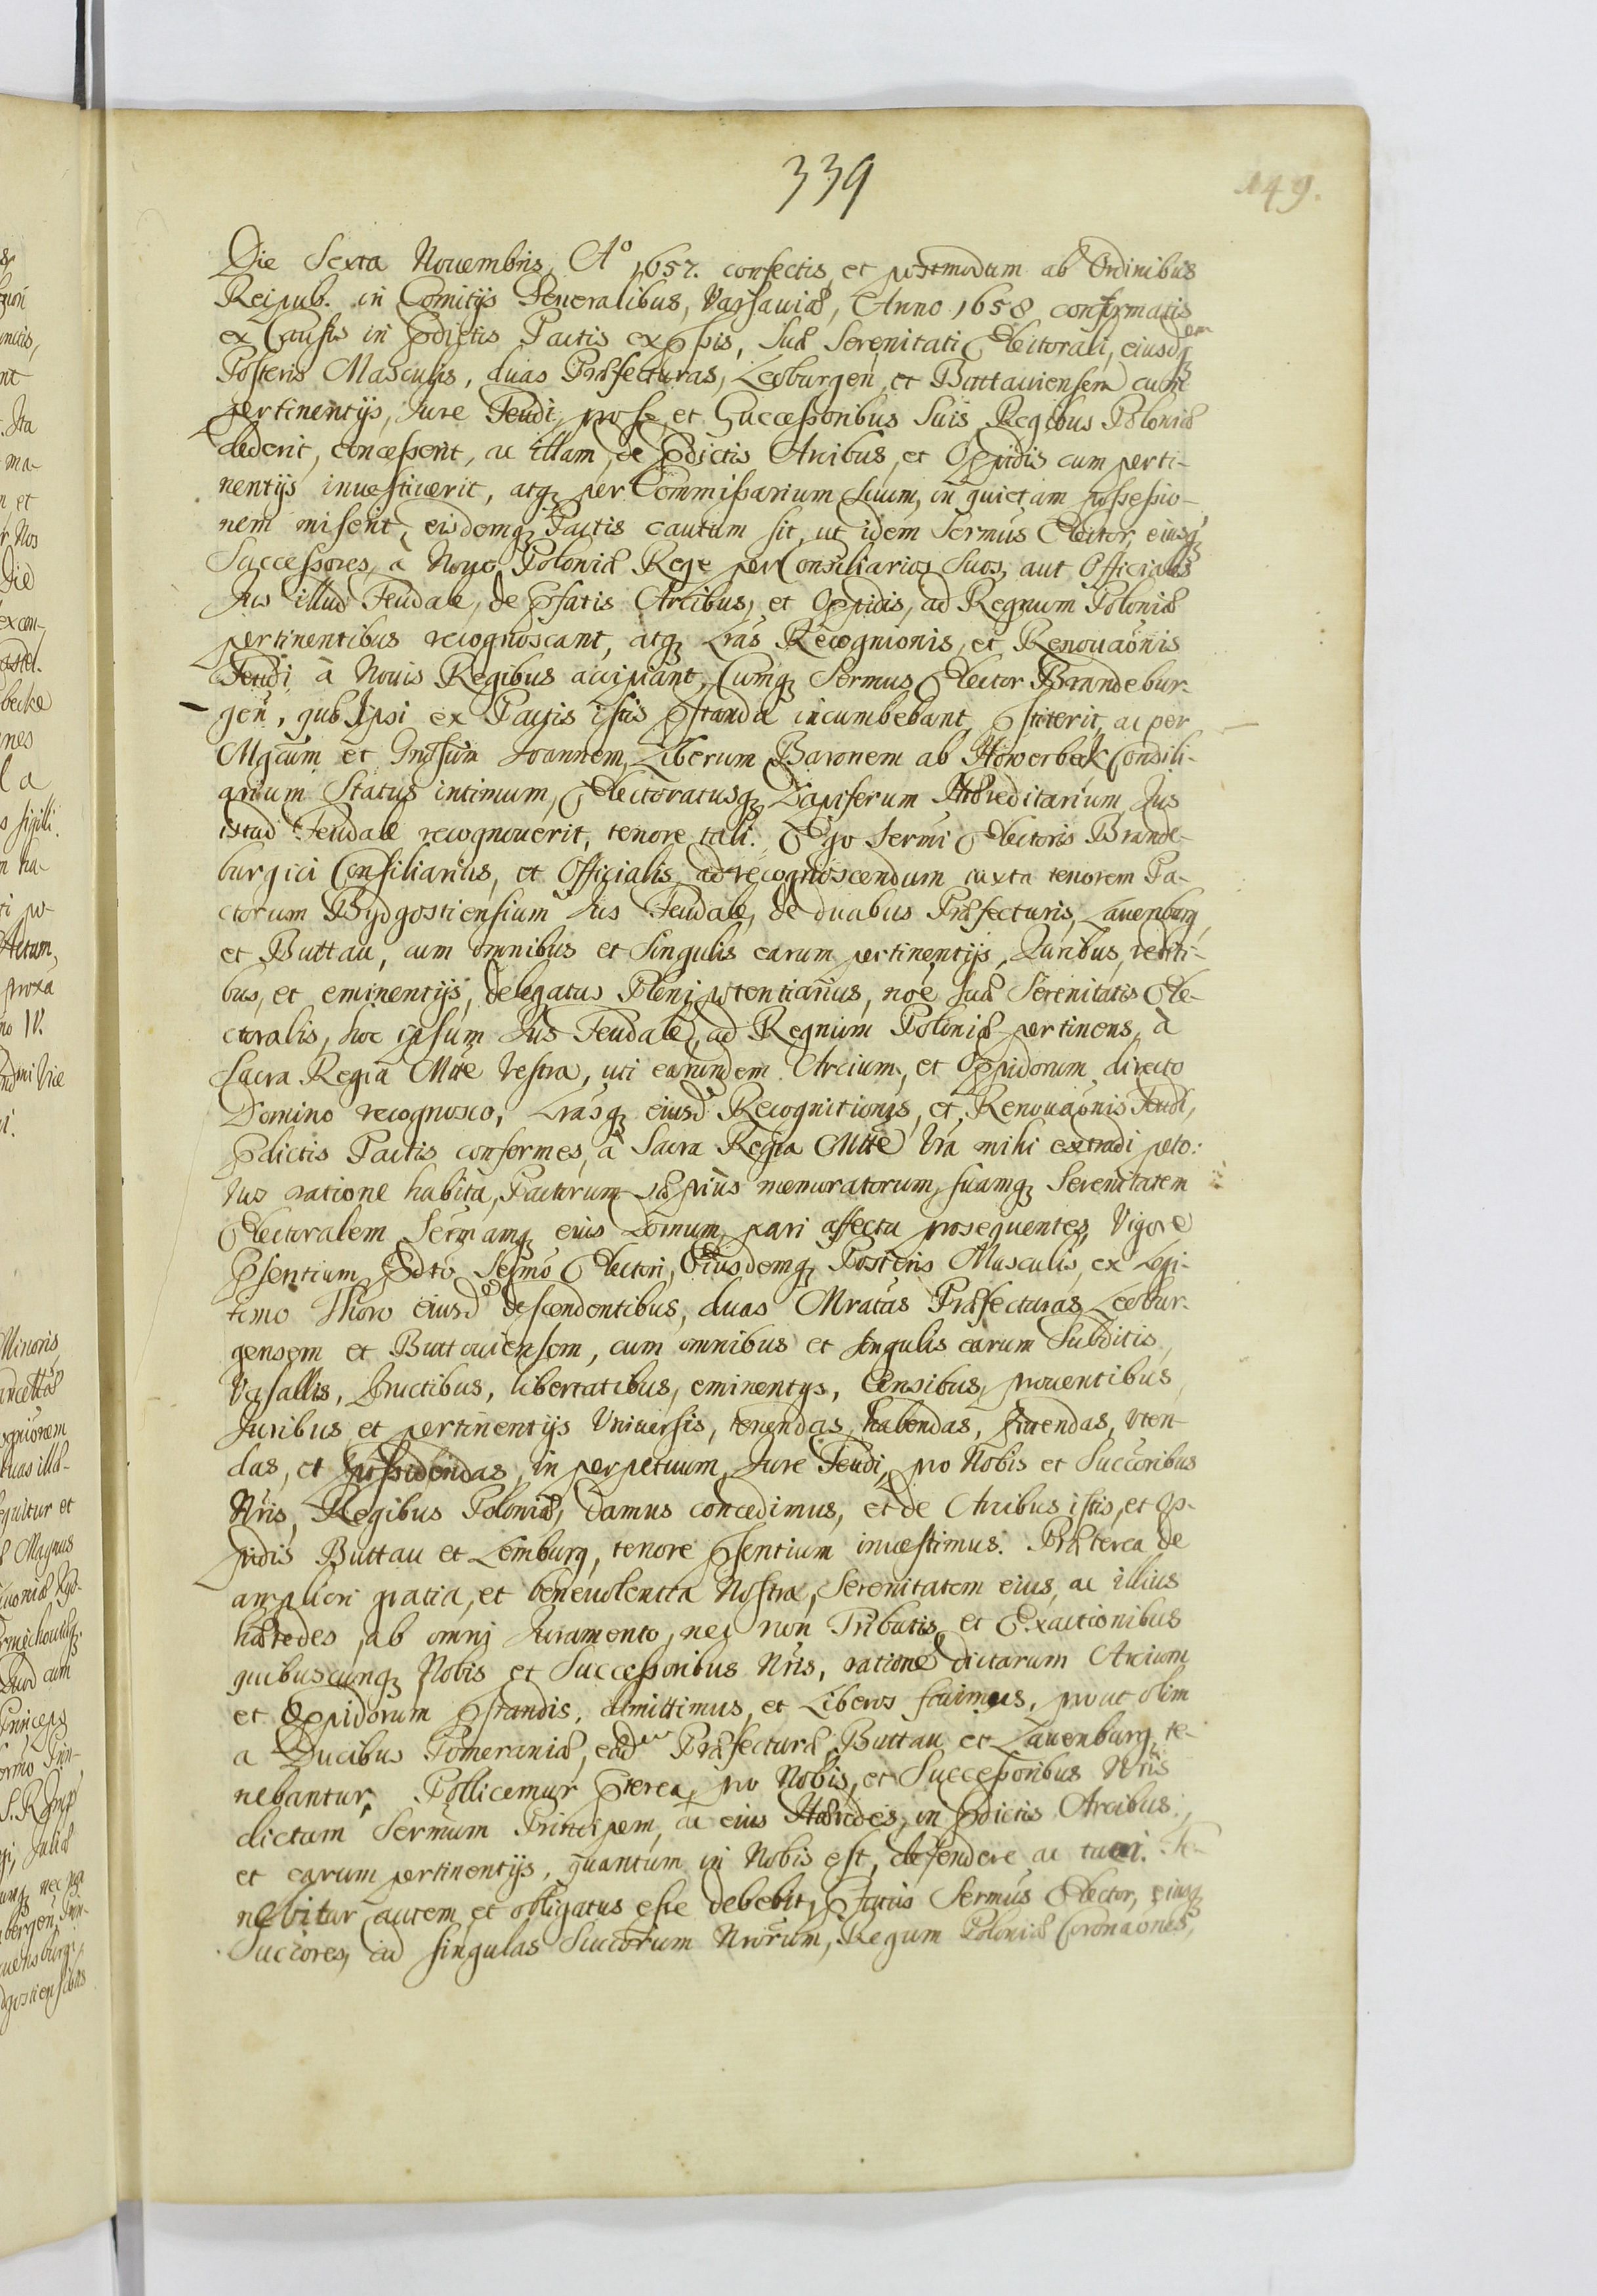 339
149.
Die Sexta Nouembris, Aº 1657. confectis, et postmodum ab Ordinibus
Reipub. in Comitijs Generalibus, Varsauiæ, Anno 1658 confirmatis
ex Causis in pdictis Pactis expssis, Suæ Serenitati Electorali, eiusdemq
Posteris Masculis, duas Præfecturas, Leoburgen, et Buttauiensem cum
pertinentijs, Jure Feudi, pro se, et Successoribus Suis Regibus Poloniæ
dederit, concesserit, ac illam, de pdictis Arcibus, et Oppidis cum perti-
nentijs inuestiuerit, atq per Commissarium Suum, in quietam possessio-
nem miserit, eisdemq Pactis cautum sit, ut idem Sermus Elector, eiusq
Successores, à Nouo Poloniæ Rege per Consiliarios Suos, aut Officiales
Jus illud Feudale, de pfatis Arcibus, et Oppidis, ad Regnum Poloniæ
pertinentibus recognoscant, atq Lras Recognionis, et Renouaonis
Feudi à Nouis Regibus accipiant, Cumq Sermus Elector Brandebur-
gen, quæ Ipsi ex Pactis istis pstanda incumbebant, pstiterit, ac per
Mgcum et Gnosum Joannem, Liberum Baronem ab Howerbek Consili-
arium Status intimum, Electoratusq Dapiferum Hæreditarium, Jus
istud Feudale recognouerit, tenore tali. Ego Sermi Electoris Brande-
burgici Consiliarius, et Officialis, ad recognoscendum iuxta tenorem Pa-
ctorum Bydgostiensium Jus Feudale, de duabus Præfecturis, Lauenburg,
et Buttau, cum omnibus et Singulis earum pertinentijs, Juribus, rediti-
bus, et eminentijs, delegatus Plenipotentiarius, noe Suæ Serenitatis Ele-
ctoralis, hoc ipsum Jus Feudale, ad Regnum Poloniæ pertinens, à
Sacra Regia Mtte Vestra, uti earundem Arcium, et Oppidorum directo
Domino recognosco, Lrasq eiusd Recognitionis, et Renouaonis Feudi,
pdictis Pactis conformes, à Sacra Regia Mtte Vra mihi extradi peto:
Nos ratione habita, Pactorum sæpius memoratorum, suamq Serenitatem
Electoralem Sermamq eius Domum, pari affectu prosequentes, Vigore
psentium pdto Sermo Electori, Eiusdemq Posteris Masculis, ex Legi-
timo Thoro eiusd descendentibus, duas Mratas Præfecturas Leobur-
gensem et Buttouiensem, cum omnibus et singulis earum Subditis,
Vasallis, Fructibus, libertatibus, eminentijs, Censibus, prouentibus,
Juribus et pertinentijs Vniuersis, tenendas, habendas, fruendas, vten-
das, et possidendas, in perpetuum, Jure Feudi, pro Nobis et Succoribus
Nris, Regibus Poloniæ, damus concedimus, et de Arcibus istis, et Op-
pidis Buttau et Lemburg, tenore psentium inuestimus. Præterea de
ampliori gratia, et beneuolentia Nostra, Serenitatem eius, ac illius
hæredes, ab omni Juramento, nec non Tributis, et Exactionibus
quibuscunq Nobis et Successoribus Nris, ratione dictarum Arcium
et Oppidorum pstandis, dimittimus, et Liberos facimus, prout olim
a Ducibus Pomeraniæ, eæd Præfecturæ, Buttau et Lauenburg, te-
nebantur, Pollicemur pterea, pro Nobis, et Successoribus Nris
dictum Sermum Principem, ac eius Hæredes, in pdictis Arcibus,
et earum pertinentijs, quantum in Nobis est, defendere ac tueri. Te-
nebitur autem et obligatus esse debebit, pfatus Sermus Elector, eiusq
Succores, ad singulas Succorum Nrorum, Regum Poloniæ Coronaones,